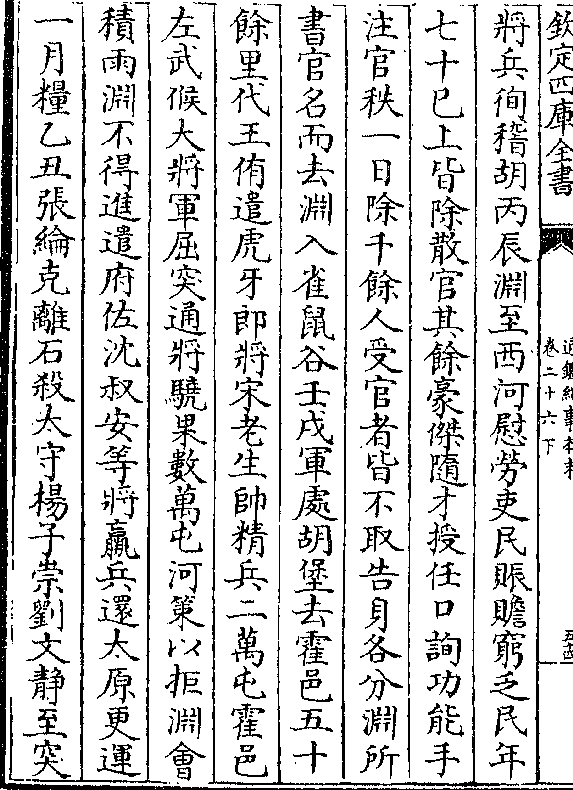 欽定四庫全書
通鑑紀事本末
卷二十六下
將兵徇稽胡丙辰淵至西河慰勞吏民賑贍窮乏民年
七十已上皆除散官其餘豪傑隨才授任口詢功能手
注官秩一日除千餘人受官者皆不取告身各分淵所
書官名而去淵入雀鼠谷壬戌軍處胡堡去霍邑五十
餘里代王侑遣虎牙郎將宋老生帥精兵二萬屯霍邑
左武候大將軍屈突通將驍果數萬屯河東以拒淵會
積雨淵不得進遣府佐沈叔安等將羸兵還太原更運
一月糧乙丑張綸克離石殺太守楊子崇劉文静至突